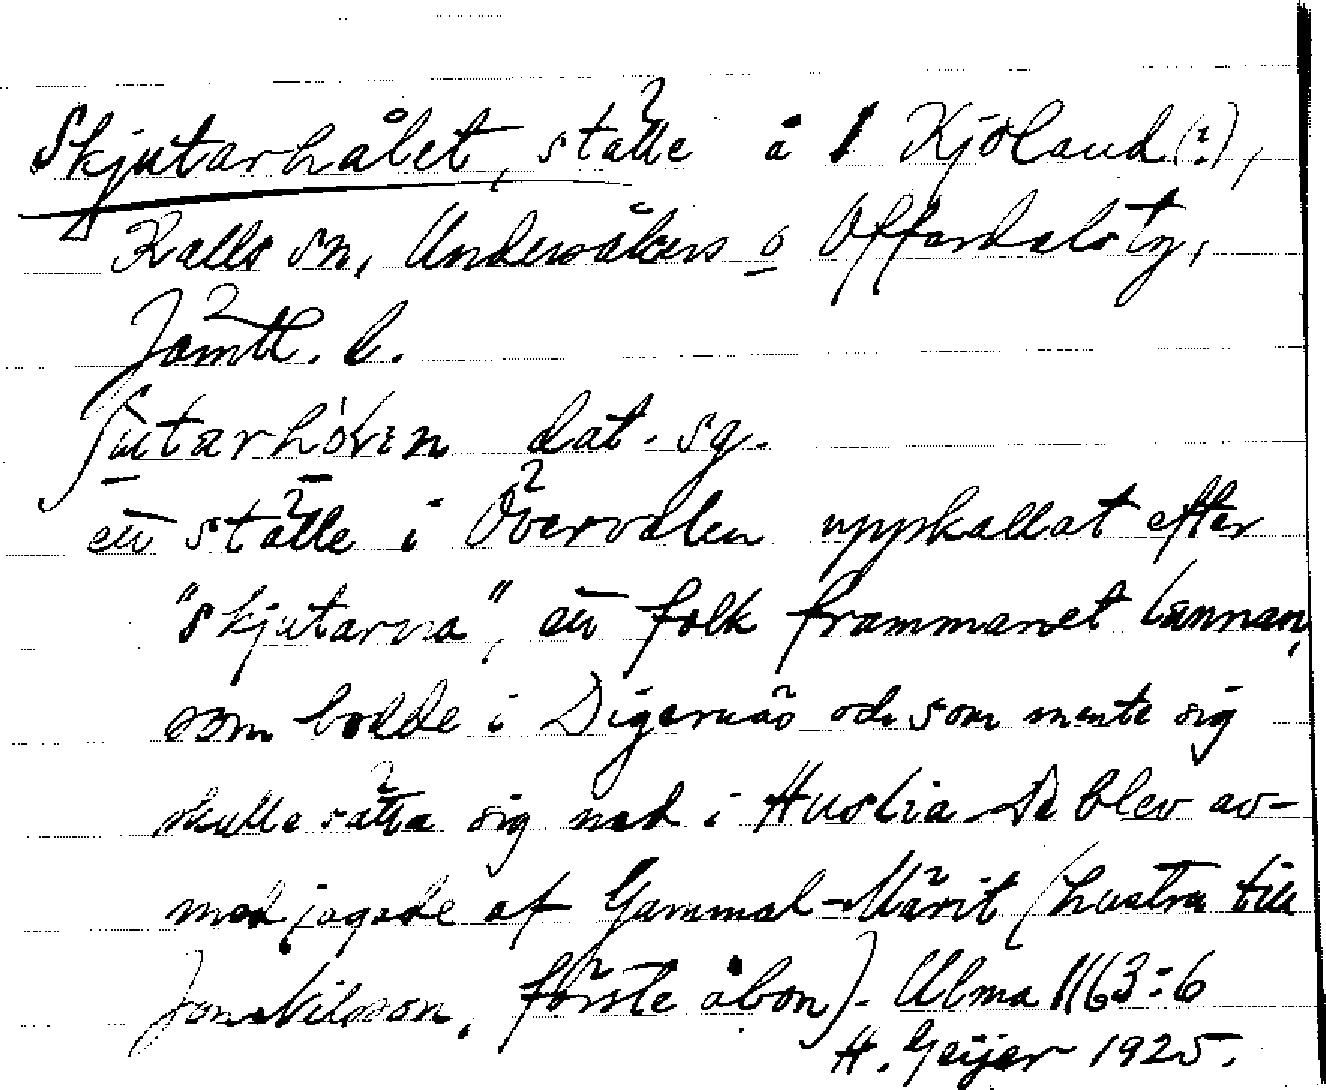 Skjutarhålet, ställe å Kjöland(?),
Kalls sn, Undersåkers o Offerdals tg,
Jämtl. l.
ʃutarhòᶅen dat. sg.
ett ställe i Övervålen uppkallat efter
"skjutarna", ett folk frammanet
som bodde i Digernäs och som mente sig
skulle sätta sig ned i Huslia De blev av-
med jagade af Gammal-Märit (hustru till
Jons Nilsson, förste åbon). Ulma 1163:6
H. Geijer 1925.